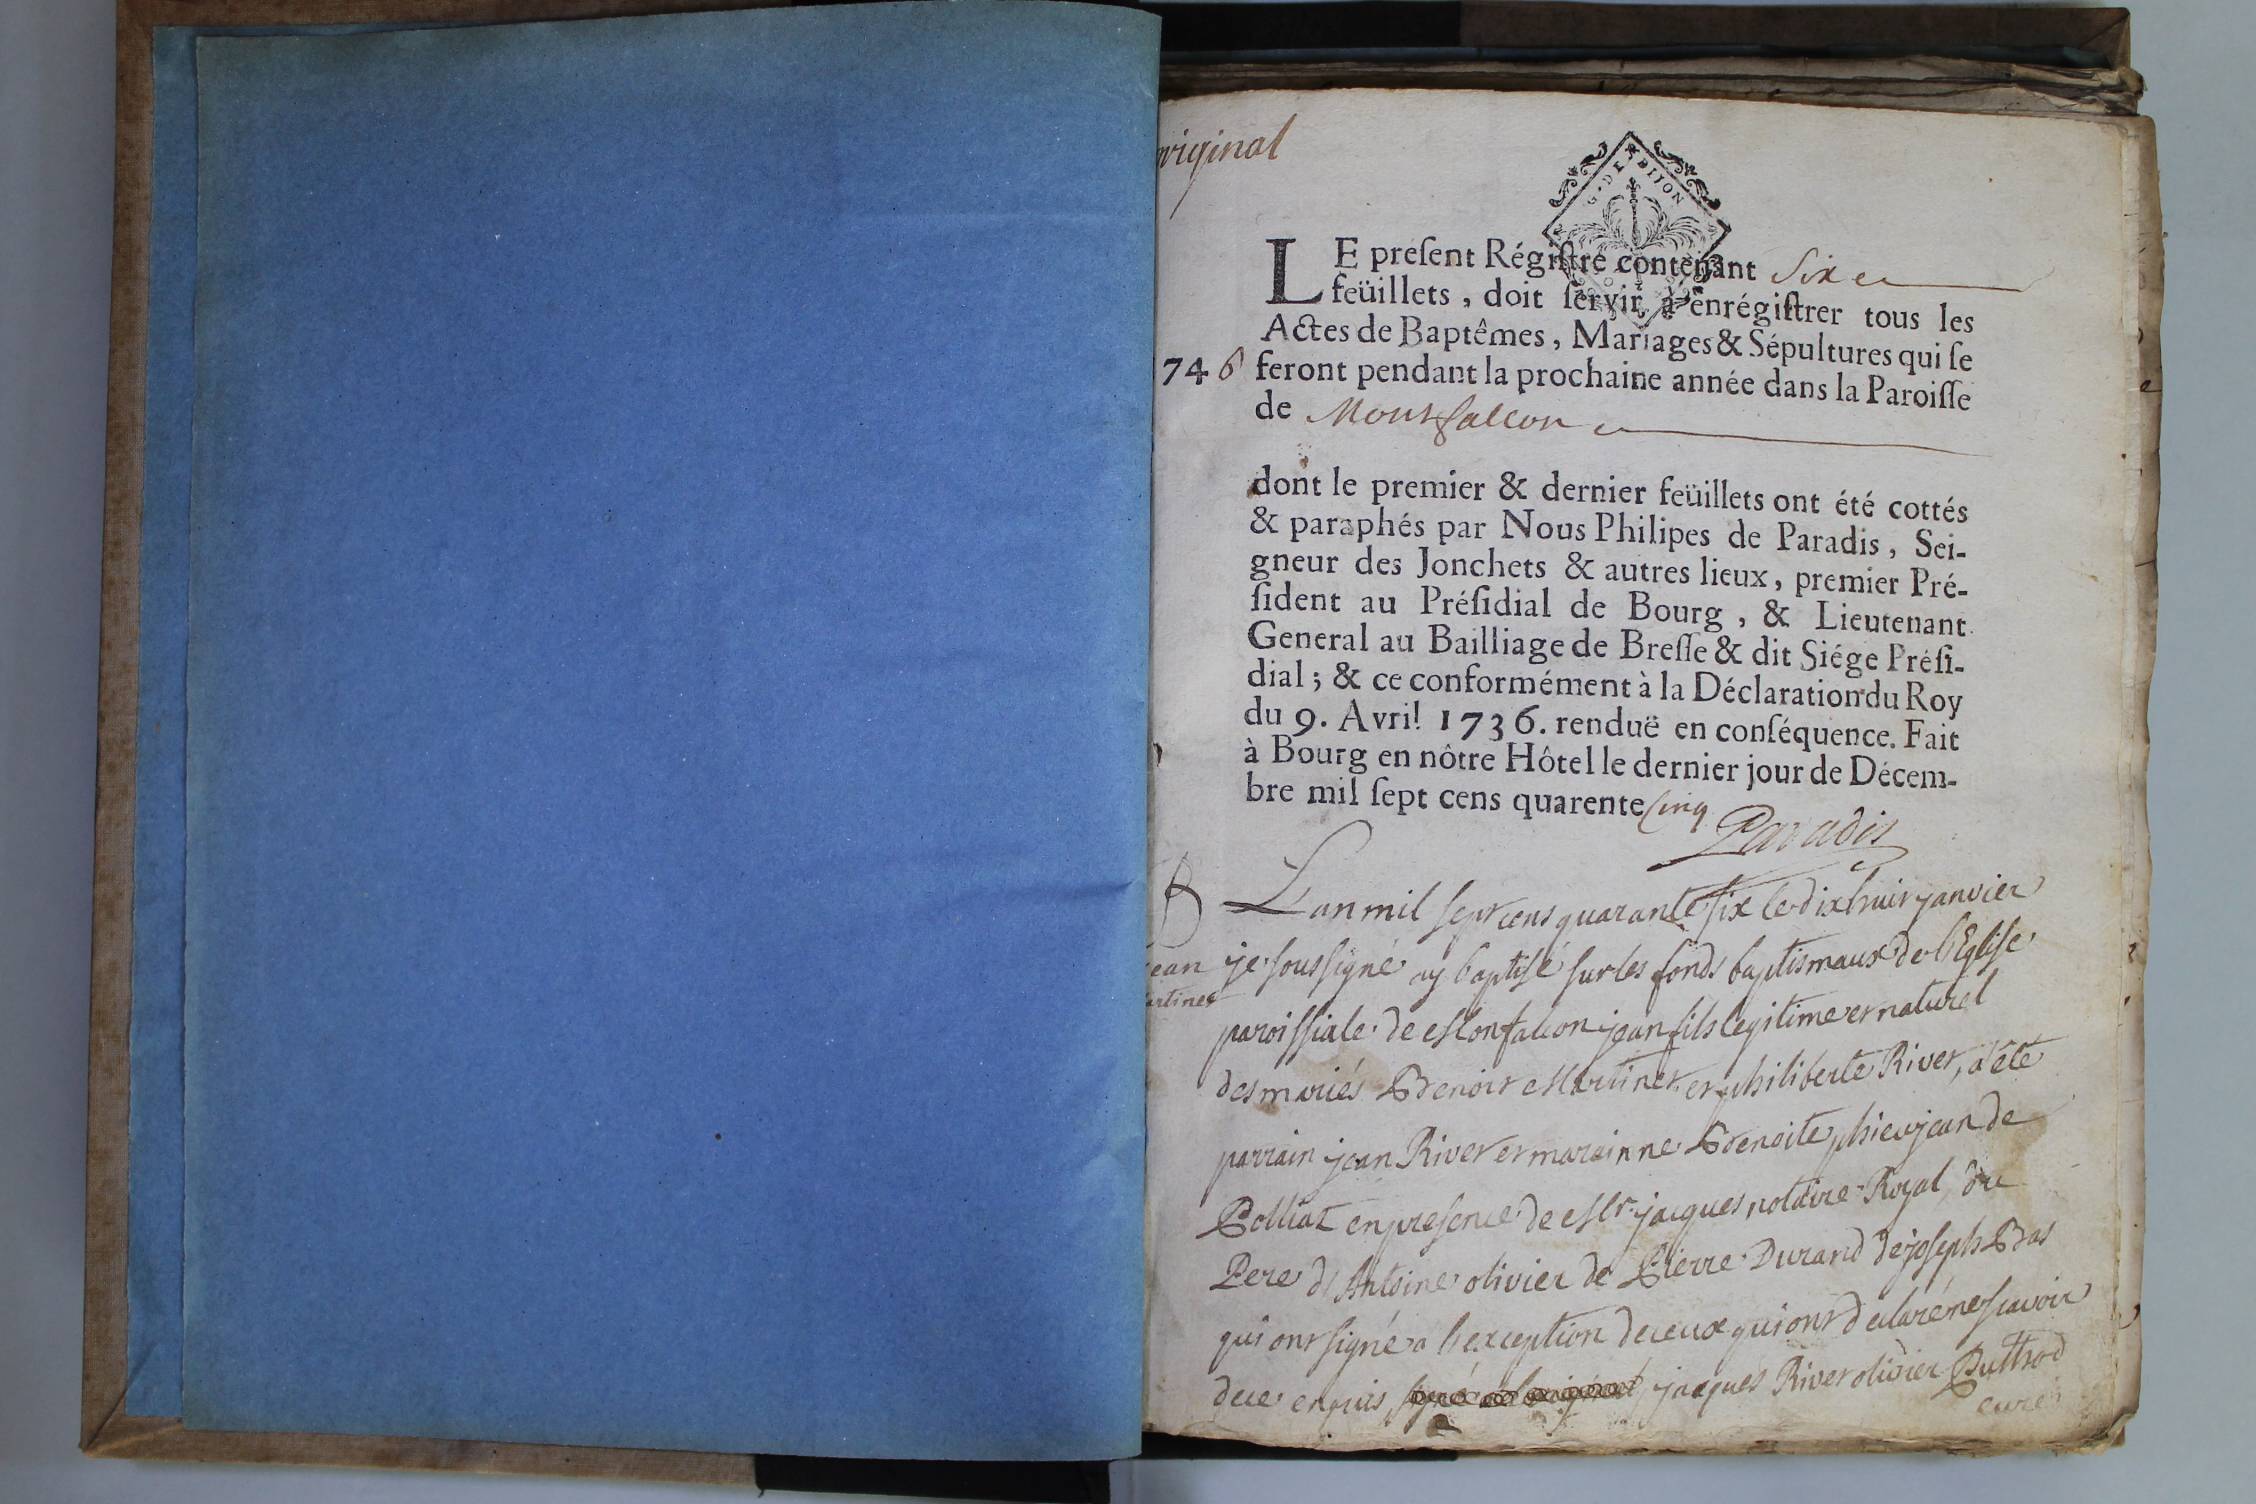 original
G. DE DIJON
LE preſent Régiſtre contenant Six
feüillets, doit ſervir à enrégiſtrer tous les
Actes de Baptêmes, Mariages & Sépultures qui ſe
746 feront pendant la prochaine année dans la Paroiſſe
de Montfalcon
dont le premier & dernier feüillets ont été cottés
& paraphés par Nous Philipes de Paradis, Sei-
gneur des Jonchets & autres lieux, premier Pré-
ſident au Préſidial de Bourg, & Lieutenant
General au Bailliage de Breſſe & dit Siége Préſi-
dial; & ce conformément à la Déclaration du Roy
du 9. Avril 1736. renduë en conſéquence. Fait
à Bourg en nôtre Hôtel le dernier jour de Décem-
bre mil ſept cens quarente Cinq
Paradis
B L'an mil sept cens quarante six le dix huit janvier
jean je soussigné ay baptisé sur les fonds baptismaux de l'Eglise
Martinet
paroissiale de Monfalcon jean fils legitime et naturel
des mariés Benoit Martinet et philiberte Rivet, a été
parrain jean Rivet et marainne Benoite jean de
Polliat en presence de Mr. jacques notaire Royal, du
Pere d'Antoine olivier de Pierre Durand de joseph Bas
qui ont signé a l'exception de ceux qui ont declaré ne scavoir
de ce enquis jacques Rivet olivier Puthod
curé